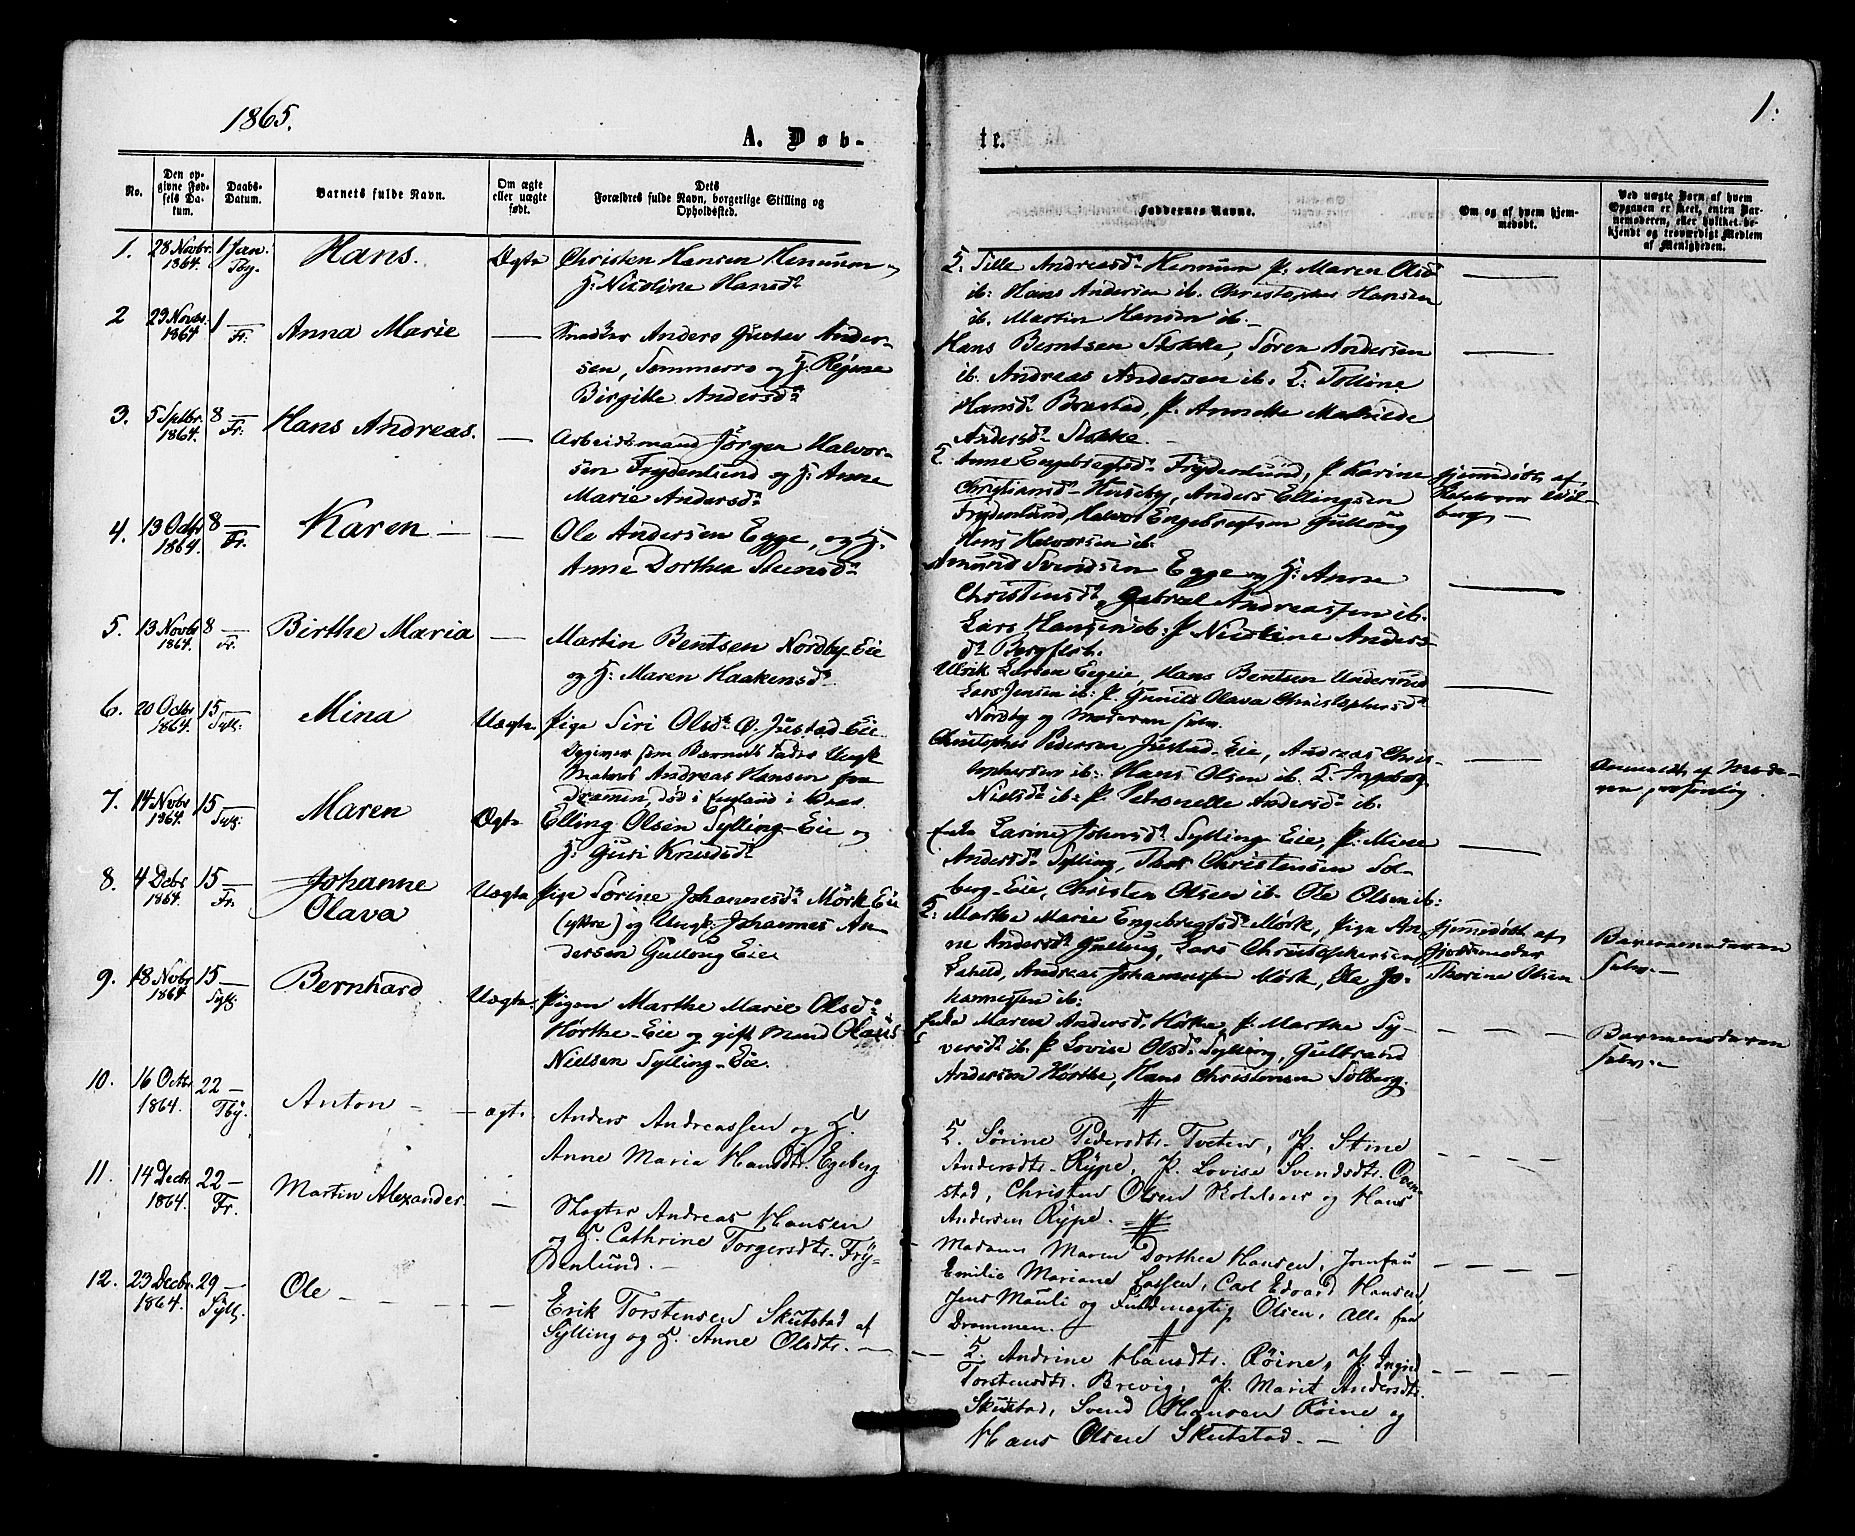 1865.
1.
A. Døb-
te.
No.
Den op-
givne Fød-
sels Da-
tum.
Daabs-
Datum.
Barnets fulde Navn.
Om ægte
eller uægte
født.
Dets
Forældres fulde Navn, borgerlige Stilling og
Opholdssted.
Faddernes Navne.
Om og af hvem hjem-
medøbt.
Ved uægte Barn af hvem
Opgaven er skeet, enten Bar-
nemoderen, eller hvilket be-
kjendt og troværdigt Medlem
af Menigheden.
1.
28 Novbr
1864.
1 Jan.
Tby.
Hans.
Ægte
Christen Hansen Hennum og
H: Nicoline Hansd.
Andreasd. Hennum P. Maren Olsd
ib: Hans Andersen ib. Christopher Hansen
ib. Martin Hansen ib.
2
29 Novbr.
1864
1 —
Fr.
Anna Marie
—
Snedker Anders Gustav Ander-
sen, Sommerro og H. Regine
Birgitte Andersd.
Hans Berntsen Stokke, Søren Andersen
ib. Andreas Andersen ib.
Hansd. P. Annette Mathilde
Andersd. Stokke.
3.
5 Septbr.
1864.
8 —
Fr:
Hans Andreas.
—
Arbeidsmand Jörgen Halvor-
sen Frydenlund og H. Anne
Marie Andersd.
Anne Engebregtsd. Frydenlund, P. Karine
Christiansd. Huseby, Anders Ellingsen
Frydenlund, Halvor Engebregtsen Gulloug
Hans Halvorsen ib.
hjemmedöbt af
4.
13 Octbr
1864.
8 —
Fr.
Karen —
—
Ole Andersen Egge, og H.
Anne Dorthea Steensd.
Amund Svendsen Egge og H: Anne
Christensd. Gabriel Andreassen ib.
Lars Hansen ib. P. Nicoline Anders-
d.
5.
13 Novbr
1864.
8 —
Fr.
Birthe Maria
—
Martin Bentsen Nordby-Eie
og H. Maren Haakensd.
Ulrik Larsen Hans Bentsen Underrud
Lars Jensen ib: P. Gunild Olava Christophersd.
Nordby og Moderen selv.
6.
20 Octbr
1864.
15 —
Syll.
Mina
Uægte
Pige Siri Olsd. Justad-Eie
Opgiver som Barnets Fader Ungk
Matros Andreas Hansen fra
Drammen, död i England i Vaar.
Christopher Pedersen Justad-Eie, Andreas Chris-
tophersen ib: Hans Olsen ib. Ingeborg
Nielsd. ib: P. Petronelle Andersd. ib.
Anmeldt af Mode-
ren personlig
7.
14 Novbr
1864.
15 —
Syll.
Maren
Ægte
Elling Olsen Sylling-Eie og
H: Guri Knudsd.
Enke Larine Johnsd. Sylling-Eie, P. Mine
Andersd. Sylling, Christensen Sol-
berg-Eie, Christen Olsen ib. Ole Olsen ib:
8.
4 Debr
1864.
15 —
Fr.
Johanne
Olava
Uægte
Pige Sørine Johannesd. Mörk Eie
(yttre) og Ungk: Johannes An-
dersen Gulloug Eie
Marthe Marie Engebregtsd. Mørk, Pige An-
ne Andersd. Gulloug, Lars Christophersen
Andreas Johannessen Mörk, Ole Jo-
hannessen ib:
hjemmedöbt af
Jordemoder
Thorine Olsen
Barnemoderen
selv.
9.
18 Novbr
1864.
15 —
Syll.
Bernhard
Uægte
Pigen Marthe Marie Olsd.
Hørthe-Eie og gift Mand Olaus
Nielsen Sylling-Eie.
Enke Maren Andersd. P. Marthe Sy-
versd. ib. P. Lovise Olsd. Sylling, Gulbrand
Andersen Hørthe, Hans Christensen Solberg.
Barnemoderen
selv.
10.
16 Octbr.
1864.
22 —
Tby.
Anton —
ægte
Anders Andreassen og H.
Anne Maria Hansdtr. Egeberg
Sørine Pedersdtr. Tveten, P. Stine
Andersdtr. Rype, P. Lovise Svendsdtr. Oven-
stad, Christen Olsen og Hans
Andersen Rype.
11.
14 Decbr.
1864.
22 —
Fr.
Martin Alexander.
—
Slagter Andreas Hansen
og H. Cathrine Torgersdtr. Fry-
denlund. —
Madame Maren Dorthea Hansen, Jomfru
Emilie Mariane Lassen, Carl Edvard Hansen
Jens Mauli og Fuldmægtig Olsen, alle fra
Drammen.
12.
23 Decbr.
1864.
29 —
Syll.
Ole — — —
—
Erik Torstensen Skutstad af
Sylling og H. Anne Olsdtr. —
Andrine Hansdtr. Röine, P. Ingrid
Torstensdtr. Brevig, P. Marit Andersdtr.
Skutstad, Svend Hansen Röine og
Hans Olsen Skutstad. —